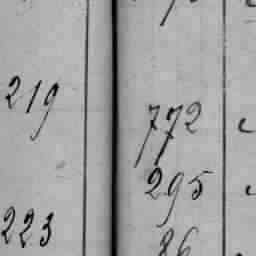 219
772
295
223
86